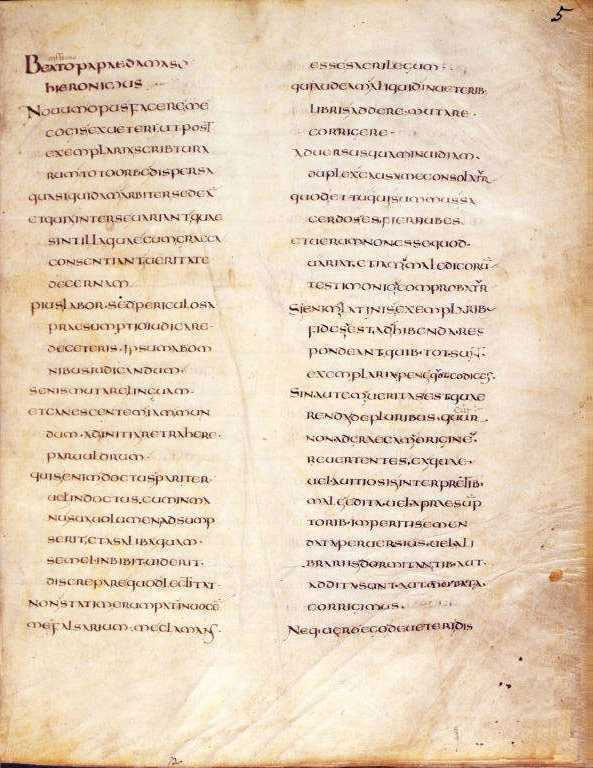 5
BEATO PAPAE DAMASO
HIERONIMUS
NOUUM OPUS FACERE ME
COGIS EX UETERI UT POST
EXEMPLARIA SCRIBTURA
RUM TOTO ORBE DISPERSA
QUASI QUIDAM ARBITER SEDEA
ET QUIA INTER SE UARIANT QUAE
SINT ILLA QUAE CUM GRAECA
CONSENTIANT UERITATE
DECERNAM
PIUS LABOR SED PERICULOSA
PRAESUMPTIO IUDICARE
DE CETERIS IPSUM AB OM
NIBUS IUDICANDUM
SENIS MUTARE LINGUAM
ET CANESCENTEM IAM MUN
DUM AD INITIA RETRAHERE
PARUULORUM
QUIS ENIM DOCTUS PARITER
UEL INDOCTUS CUM IN MA
NUS UOLUMEN ADSUMP
SERIT ET A SALIBA QUAM
SEMEL INBIBIT UIDERIT
DISCREPARE QUOD LECTITAT
NON STATIM ERUMPAT IN UOCE
ME FALSARIUM ME CLAMANS
ESSE SACRILEGUM
QUI AUDEAM ALIQUID IN UETERIB
LIBRIS ADDERE MUTARE
CORRIGERE
ADUERSUS QUAM INUIDIAM
DUPLEX CAUSA ME CONSOLATR
QUOD ET TU QUI SUMMUS SA
CERDOS ES FIERI IUBES
ET UERUM NON ESSE QUOD
UARIAT ETIAM MALEDICORU
TESTIMONIO COMPROBATR
SI ENIM LATINIS EXEMPLARIB
FIDES EST ADHIBENDA RES
PONDEANT QUIB TOT SUNT
EXEMPLARIA PENE QUOT CODICES
SIN AUTEM UERITAS EST QUAE
RENDA DE PLURIBUS CUR
NON AD GRAECAM ORIGINE
REUERTENTES EA QUAE
UEL A UITIOSIS INTERPRETIB
MALE EDITA UEL A PRAESUMP
TORIB IMPERITIS EMEN
DATA PERUERSIUS UEL A LI
BRARIIS DORMITANTIB AUT
ADDITA SUNT AUT MUTATA
CORRIGIMUS
NEQ UERO EGO DE UETERI DIS